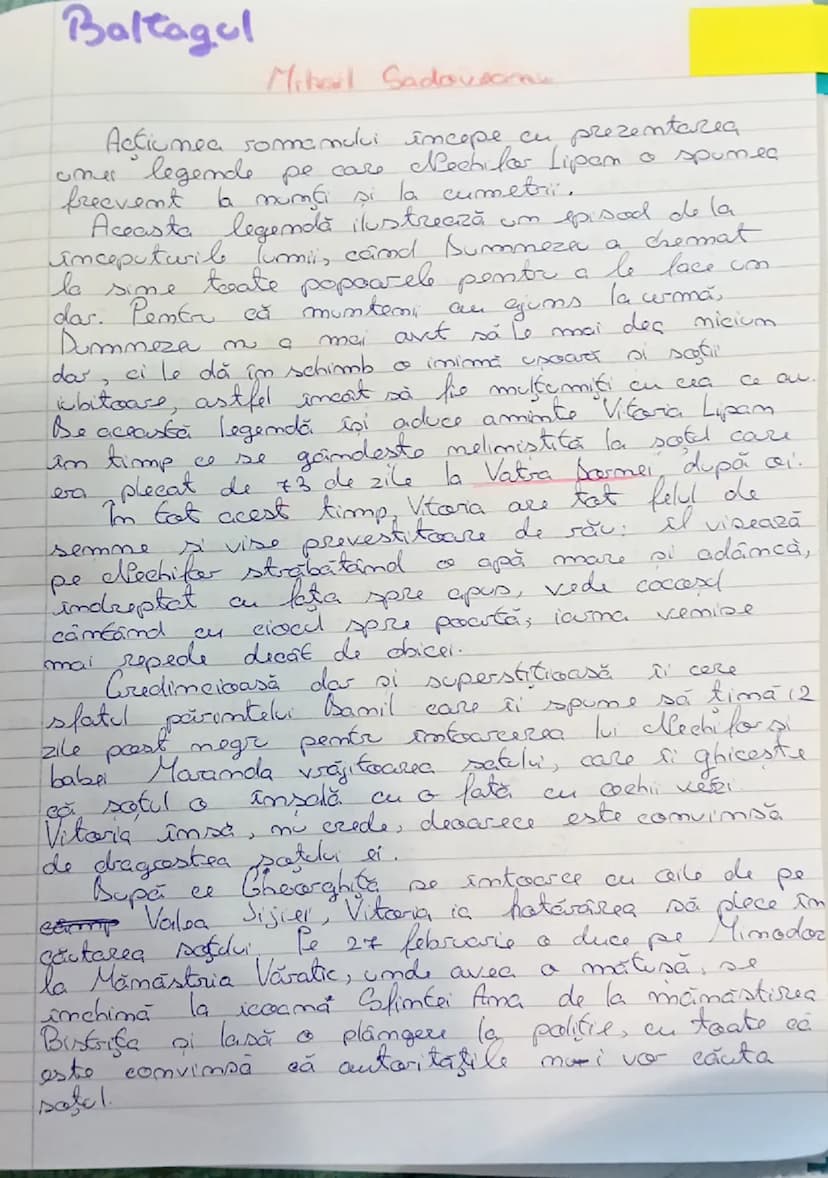 Baltagul
Mihail Sadoveanu
Acțiunea romanului începe cu prezentarea
unei legende pe care Nechifor Lipan o spunea
frecvent la nunți și la cumetrii.
Aceasta legendă ilustrează un episod de la
începuturile lumii, când Dumnezeu a chemat
la sine toate popoarele pentru a le face un
dar. Pentru că muntenii au ajuns la urmă,
Dumnezeu nu a mai avut să le mai dea niciun
dar, ci le dă în schimb o inimă ușoară și soții
iubitoare, astfel încât să fie mulțumiți cu cea ce au.
De această legendă își aduce aminte Vitoria Lipan
în timp ce se gândește neliniștită la soțul care
era plecat de 73 de zile la Vatra Dornei, după oi.
În tot acest timp, Vitoria are tot felul de
semne și vise prevestitoare de rău: îl visează
pe Nechifor străbătând o apă mare și adâncă,
îndreptat cu fața spre apus, vede cocoșul
cântând cu ciocul spre poartă, iarna venise
mai repede decât de obicei.
Credincioasă dar și superstițioasă îi cere
sfatul părintelui Danil care îi spune să țină 12
zile post negru pentru întoarcerea lui Nechifor și
babei Maranda vrăjitoarea satului, care îi ghicește
că soțul o înșală cu o fată cu ochii verzi
Vitoria însă, nu crede, deoarece este convinsă
de dragostea soțului ei.
După ce Gheorghiță se întoarce cu oile de pe
Valea Jijiei, Vitoria ia hotărârea să plece în
căutarea soțului. Pe 27 februarie o duce pe Minodora
la Mănăstria Văratic, unde avea o mătușă, se
închină la icoana Sfintei Ana de la mănăstirea
Bistrița și lasă o plângere la poliție, cu toate că
este convinsă că autoritățile nu-i vor căuta
soțul.